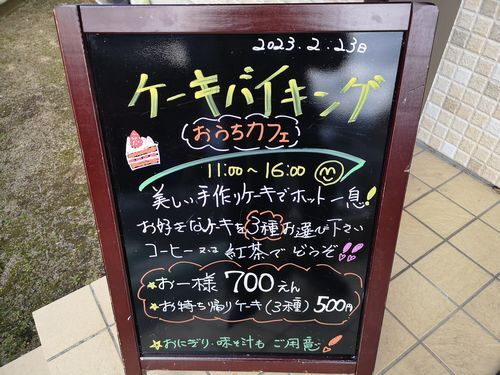 2023.2.23日
ケーキバイキング
おうちカフェ
11:00～16:00
美しい手作りケーキでホット一息!
お好きなケーキを3種お選び下さい
コーヒー又は紅茶でどうぞ!!
★お一様 700えん
★お持ち帰りケーキ(3種) 500円
★おにぎり・味そ汁もご用意!